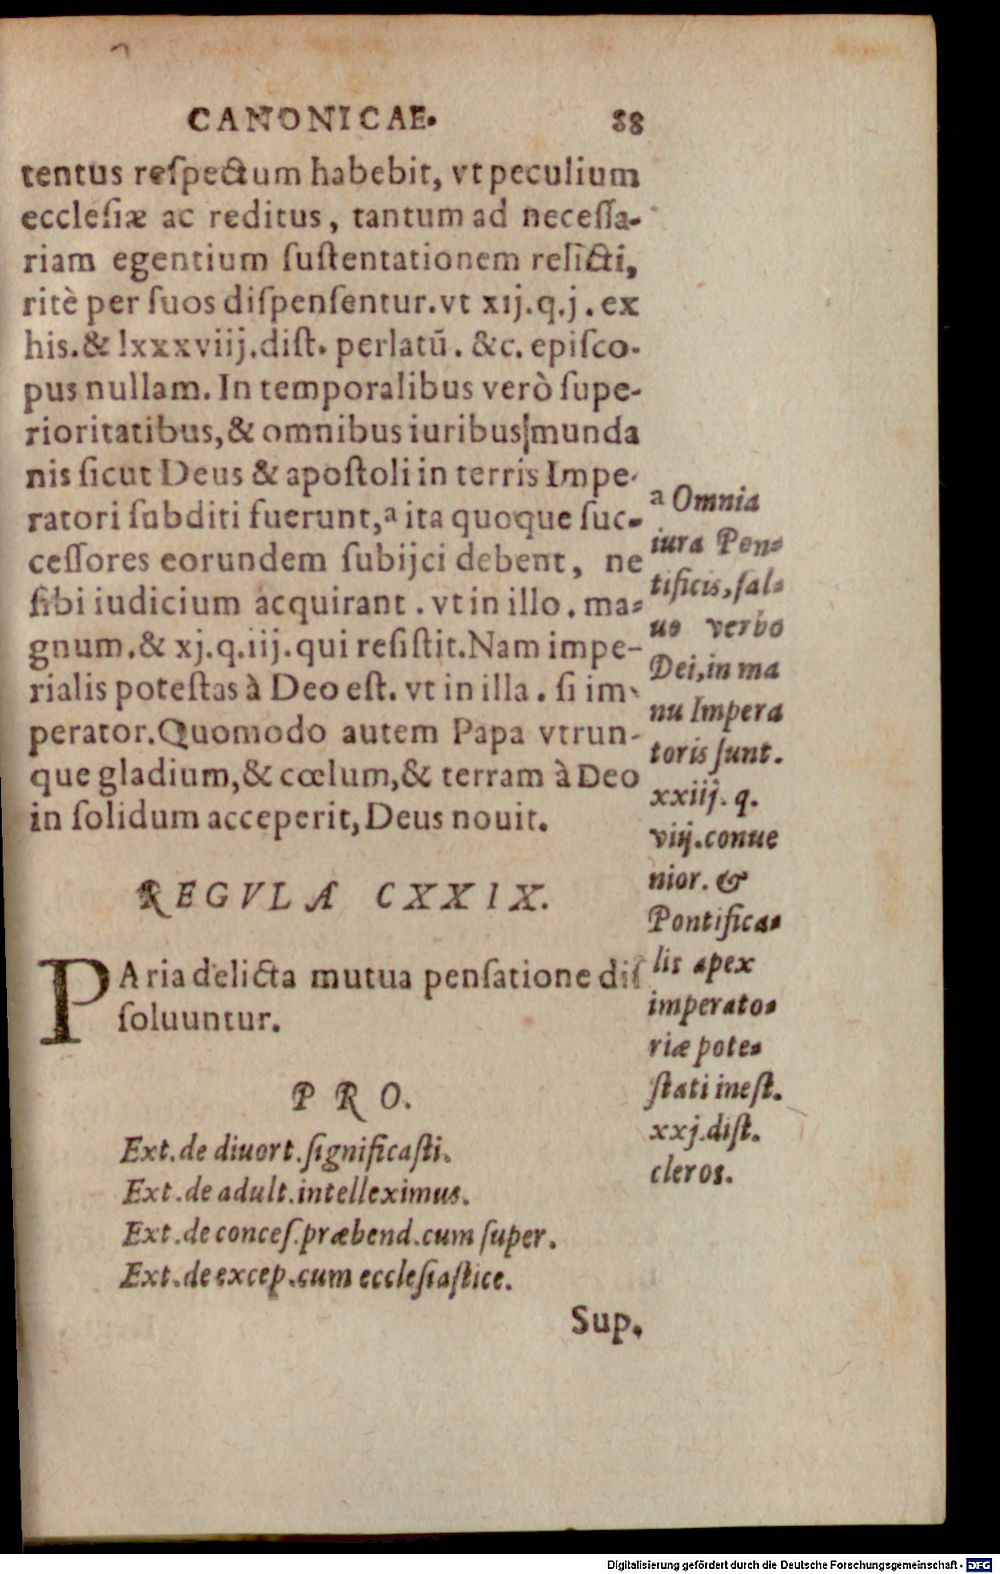 CANONICAE. 88
tentus reſpectum habebit, vt peculium
eccleſiæ ac reditus, tantum ad neceſſa-
riam egentium ſuſtentationem relicti,
ritè per ſuos diſpenſentur. vt xij.q.j. ex
his. & lxxxviij. diſt. perlatū. &c. epiſco-
pus nullam. In temporalibus verò ſupe-
rioritatibus, & omnibus iuribus munda
nis ſicut Deus & apoſtoli in terris Impe-
ratori ſubditi fuerunt, a ita quoque ſuc-
ceſſores eorundem ſubijci debent, ne
ſibi iudicium acquirant. vt in illo. ma-
gnum. & xj.q.iij. qui reſiſtit. Nam impe-
rialis poteſtas à Deo eſt. vt in illa. ſi im-
perator. Quomodo autem Papa vtrun-
que gladium, & cœlum, & terram à Deo
in ſolidum acceperit, Deus nouit.
a Omnia
iura Pen-
tificis, ſal-
uo verbo
Dei, in ma
nu Impera
toris ſunt.
xxiij. q.
viij. conue
nior. &
Pontifica-
lis apex
imperato-
riæ pote-
ſtati ineſt.
xxj. diſt.
cleros.
REGVLA CXXIX.
PAria delicta mutua penſatione diſ
ſoluuntur.
PRO.
Ext. de diuort. ſignificaſti.
Ext. de adult. intelleximus.
Ext. de conceſ. præbend. cum ſuper.
Ext. de excep. cum eccleſiaſtice.
Sup.
Digitalisierung gefördert durch die Deutsche Forschungsgemeinschaft - DFG